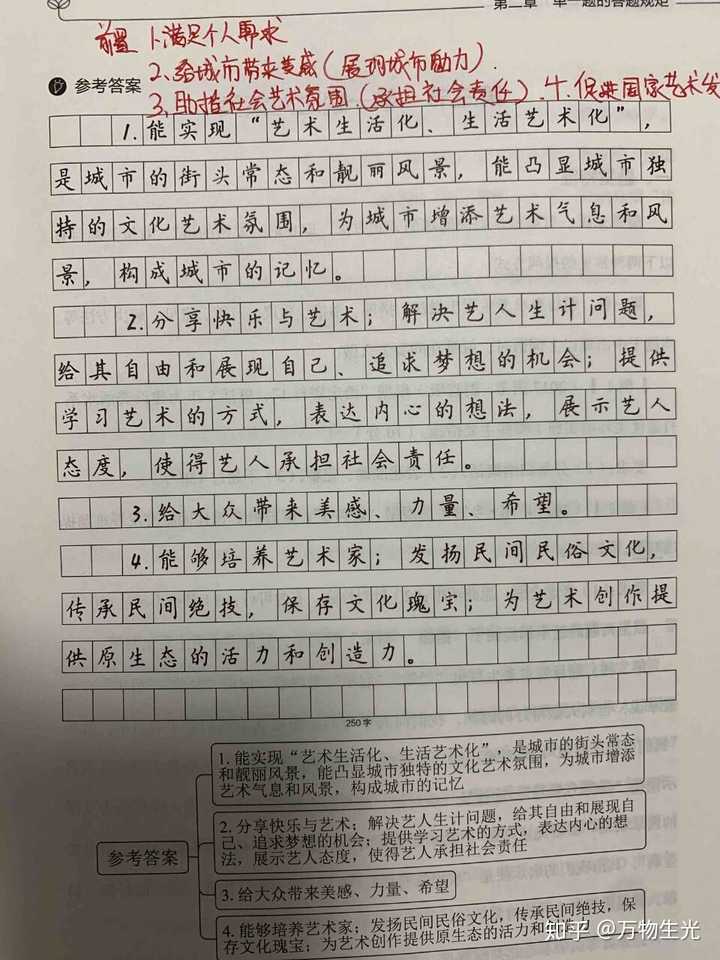 第二章 单一题的答题规矩
前置 1.满足个人要求
2.给城市带来美感(展现城市魅力).
3.助推社会艺术氛围.(承担社会责任).4.促进国家艺术发
参考答案
1.能实现“艺术生活化、生活艺术化”,
是城市的街头常态和靓丽风景,能凸显城市独
特的文化艺术氛围,为城市增添艺术气息和风
景,构成城市的记忆。
2.分享快乐与艺术;解决艺人生计问题,
给其自由和展现自己、追求梦想的机会;提供
学习艺术的方式,表达内心的想法,展示艺人
态度,使得艺人承担社会责任。
3.给大众带来美感、力量、希望。
4.能够培养艺术家;发扬民间民俗文化,
传承民间绝技,保存文化瑰宝;为艺术创作提
供原生态的活力和创造力。
250字
参考答案
1.能实现“艺术生活化、生活艺术化”,是城市的街头常态
和靓丽风景,能凸显城市独特的文化艺术氛围,为城市增添
艺术气息和风景,构成城市的记忆
2.分享快乐与艺术;解决艺人生计问题,给其自由和展现自
己、追求梦想的机会;提供学习艺术的方式,表达内心的想
法,展示艺人态度,使得艺人承担社会责任
3.给大众带来美感、力量、希望
4.能够培养艺术家;发扬民间民俗文化,传承民间绝技,保
存文化瑰宝;为艺术创作提供原生态的活力和创造力
知乎 @万物生光